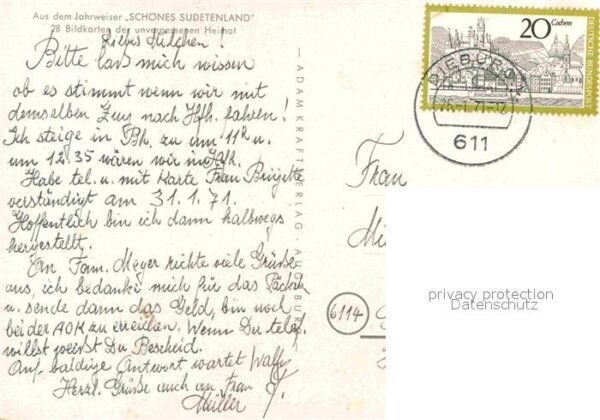 Aus dem Jahrweiser „SCHÖNES SUDETENLAND"
28 Bildkarten der unvergessenen Heimat
Liebes Milchen!
Bitte laß mich wissen
ob es stimmt wenn wir mit
demselben Zug nach Hfh. fahren!
Ich steige in Bh. zu um 11 u.
um 12.35 wären wir in
Habe tel. u. mit Karte Frau Brigitte
verständigt am 31.1.71.
Hoffentlich bin ich dann halbwegs
hergestellt.
An Fam. Meyer richte viele Grüße
aus, ich bedanke mich für das Päckchen
u. sende dann das Geld, bin noch
bei der AOK zu erreichen. Wenn Du telef.
willst weißt Du Bescheid.
Auf baldige Antwort wartet Wally
Herzl. Grüße auch an Frau
Müller
ADAM KRAFT VERLAG
20 Cochem
DEUTSCHE BUNDESPOST
DIEBURG
25.-1.71-12
611
Frau
6114
privacy protection
Datenschutz